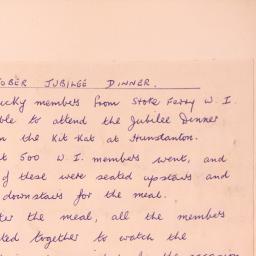 TOBER JUBILEE DINNER.
ucky members from Stoke Ferry W.I.
ble to attend the Jubilee Dinner
n the Kit Kat at Hunstanton.
t 500 W.I. members went, and
of these were seated upstairs and
downstairs for the meal.
ter the meal, all the members
ted together to watch the